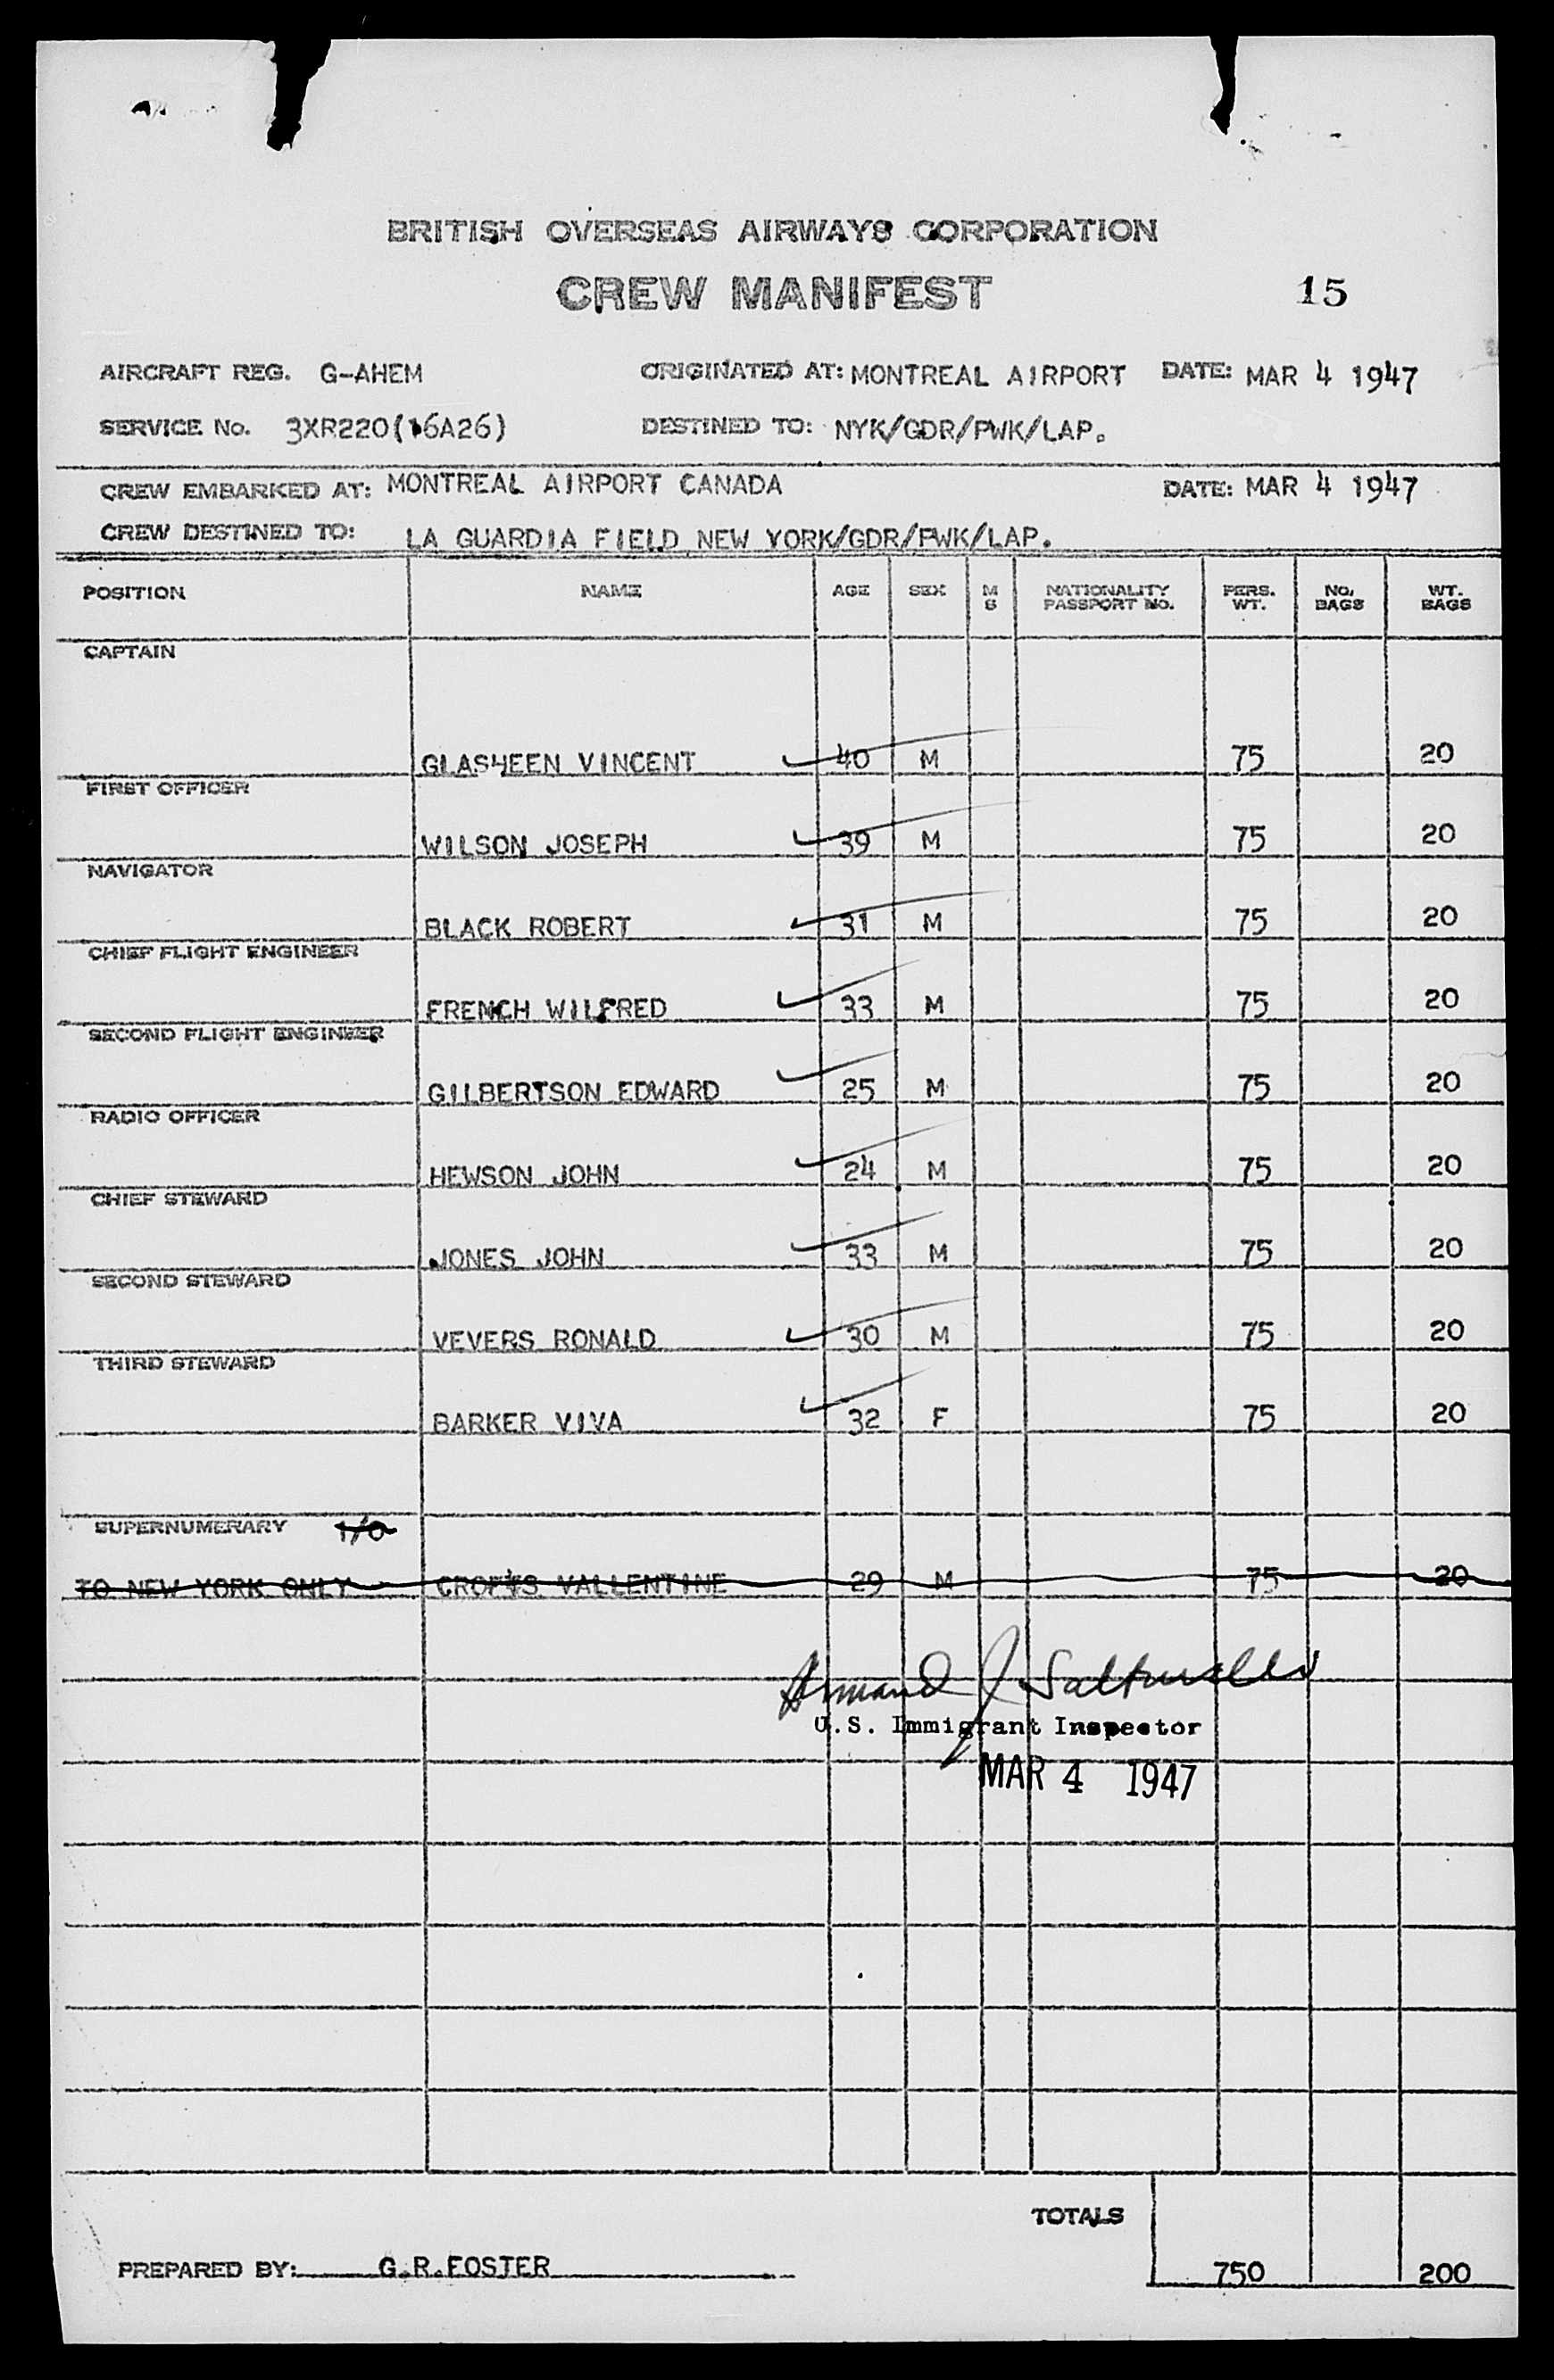 BRITISH OVERSEAS AIRWAYS CORPORATION
CREW MANIFEST 15
AIRCRAFT REG. G-AHEM ORIGINATED AT: MONTREAL AIRPORT DATE: MAR 4 1947
SERVICE No. 3XR220(16A26) DESTINED TO: NYK/GDR/PWK/LAP.
CREW EMBARKED AT: MONTREAL AIRPORT CANADA DATE: MAR 4 1947
CREW DESTINED TO: LA GUARDIA FIELD NEW YORK/GDR/PWK/LAP.
POSITION NAME AGE SEX M S NATIONALITY PASSPORT NO. PERS. WT. No. BAGS WT. BAGS
CAPTAIN
GLASHEEN VINCENT 40 M 75 20
FIRST OFFICER
WILSON JOSEPH 39 M 75 20
NAVIGATOR
BLACK ROBERT 31 M 75 20
CHIEF FLIGHT ENGINEER
FRENCH WILFRED 33 M 75 20
SECOND FLIGHT ENGINEER
GILBERTSON EDWARD 25 M 75 20
RADIO OFFICER
HEWSON JOHN 24 M 75 20
CHIEF STEWARD
JONES JOHN 33 M 75 20
SECOND STEWARD
VEVERS RONALD 30 M 75 20
THIRD STEWARD
BARKER VIVA 32 F 75 20
SUPERNUMERARY
TO NEW YORK ONLY CROFTS VALLENTINE 29 M 75 20
Armand J
U.S. Immigrant Inspector
MAR 4 1947
TOTALS
PREPARED BY: G.R.FOSTER 750 200